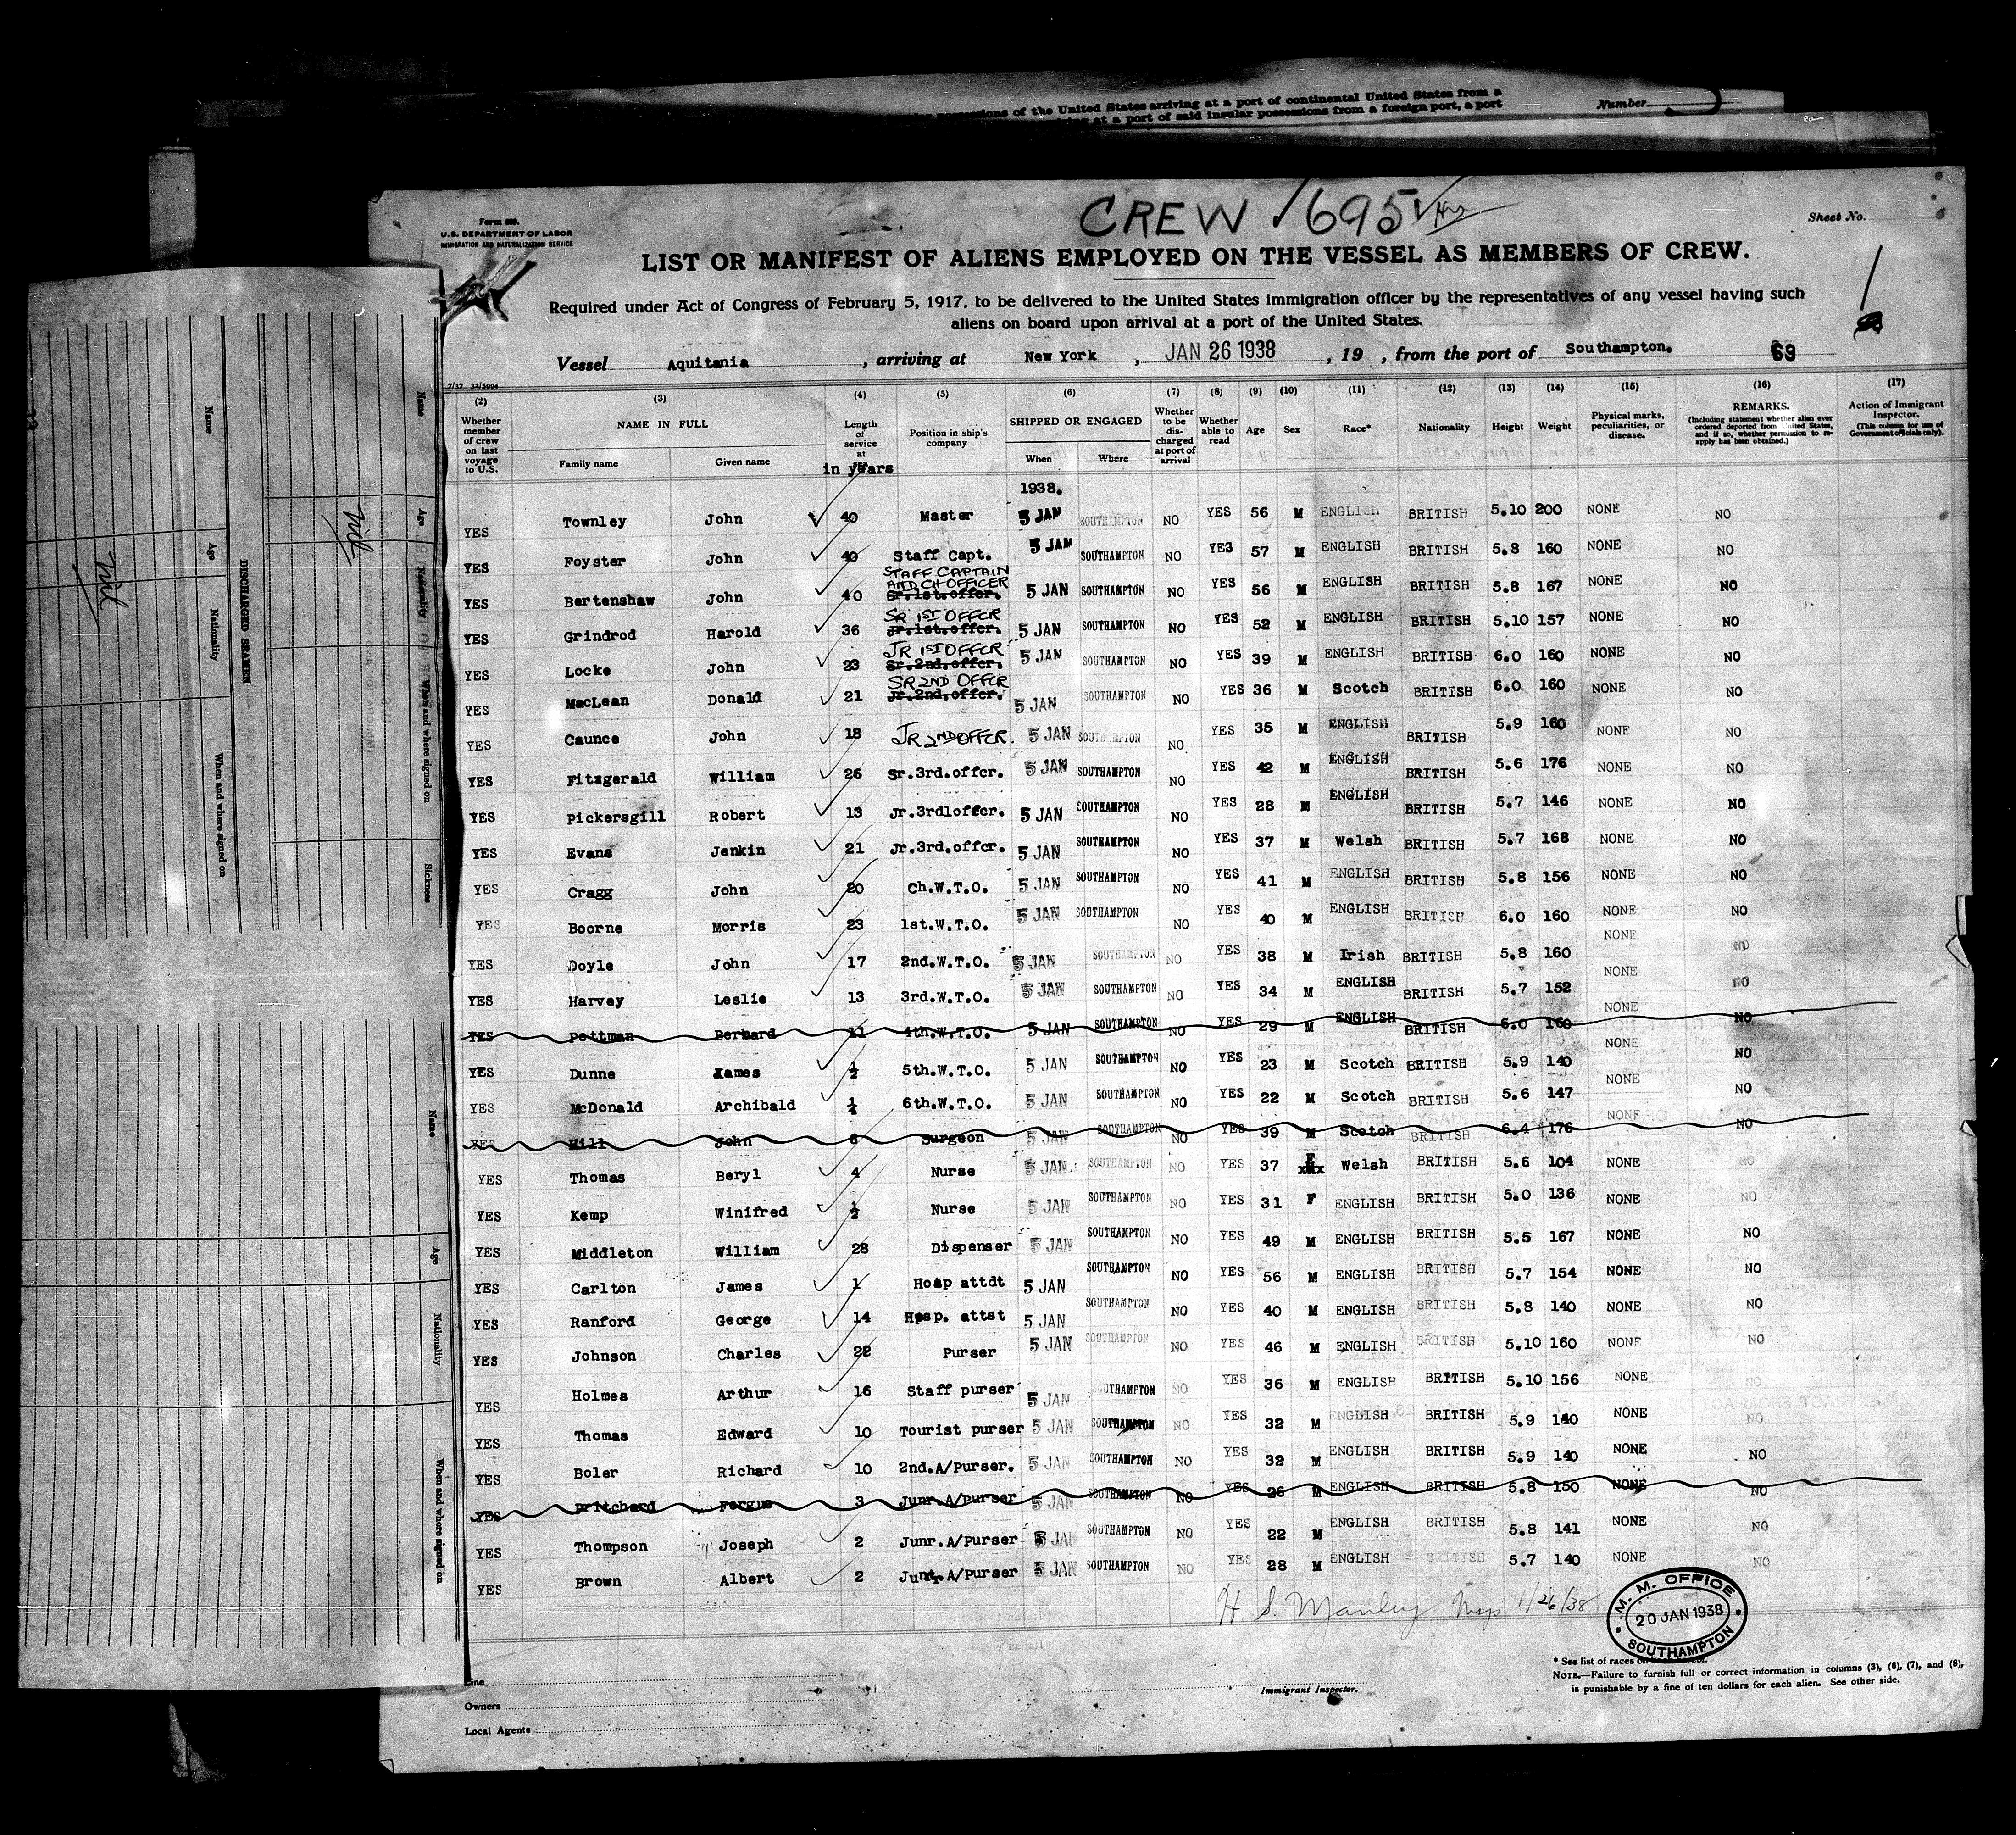 ions of the United States arriving at a port of continental United States from a
at a port of said insular possessions from a foreign port, a port
Number
CREW 1695
Sheet No.
1
Form 689.
U. S. DEPARTMENT OF LABOR
IMMIGRATION AND NATURALIZATION SERVICE
LIST OR MANIFEST OF ALIENS EMPLOYED ON THE VESSEL AS MEMBERS OF CREW.
Required under Act of Congress of February 5, 1917, to be delivered to the United States immigration officer by the representatives of any vessel having such
aliens on board upon arrival at a port of the United States.
Vessel Aquitania , arriving at New York , JAN 26 1938 , 19 , from the port of Southampton. 69
(2) Whether member of crew on last voyage to U.S.
(3) NAME IN FULL Family name Given name
(4) Length of service at in years
(5) Position in ship's company
(6) SHIPPED OR ENGAGED When Where
(7) Whether to be discharged at port of arrival
(8) Whether able to read
(9) Age
(10) Sex
(11) Race*
(12) Nationality
(13) Height
(14) Weight
(15) Physical marks, peculiarities, or disease.
(16) REMARKS. (Including statement whether alien ever ordered deported from United States, and if so, whether permission to reapply has been obtained.)
(17) Action of Immigrant Inspector. (This column for use of Government officials only).
1938.
YES Townley John 40 Master 5 JAN SOUTHAMPTON NO YES 56 M ENGLISH BRITISH 5.10 200 NONE NO
YES Foyster John 40 Staff Capt. 5 JAN SOUTHAMPTON NO YES 57 M ENGLISH BRITISH 5.8 160 NONE NO
STAFF CAPTAIN AND CH OFFICER
YES Bertenshaw John 40 Sr.1st.offcr. 5 JAN SOUTHAMPTON NO YES 56 M ENGLISH BRITISH 5.8 167 NONE NO
SR 1ST OFFCR
YES Grindrod Harold 36 Jr.1st.offcr. 5 JAN SOUTHAMPTON NO YES 52 M ENGLISH BRITISH 5.10 157 NONE NO
JR 1ST OFFCR
YES Locke John 23 Sr.2nd.offcr. 5 JAN SOUTHAMPTON NO YES 39 M ENGLISH BRITISH 6.0 160 NONE NO
SR 2ND OFFCR
YES MacLean Donald 21 Jr.2nd.offcr. 5 JAN SOUTHAMPTON NO YES 36 M Scotch BRITISH 6.0 160 NONE NO
YES Caunce John 18 JR 2ND OFFCR. 5 JAN SOUTHAMPTON NO YES 35 M ENGLISH BRITISH 5.9 160 NONE NO
YES Fitzgerald William 26 Sr.3rd.offcr. 5 JAN SOUTHAMPTON NO YES 42 M ENGLISH BRITISH 5.6 176 NONE NO
YES Pickersgill Robert 13 Jr.3rdloffcr. 5 JAN SOUTHAMPTON NO YES 28 M ENGLISH BRITISH 5.7 146 NONE NO
YES Evans Jenkin 21 Jr.3rd.offcr. 5 JAN SOUTHAMPTON NO YES 37 M Welsh BRITISH 5.7 168 NONE NO
YES Cragg John 20 Ch.W.T.O. 5 JAN SOUTHAMPTON NO YES 41 M ENGLISH BRITISH 5.8 156 NONE NO
YES Boorne Morris 23 1st.W.T.O. 5 JAN SOUTHAMPTON NO YES 40 M ENGLISH BRITISH 6.0 160 NONE NO
YES Doyle John 17 2nd.W.T.O. 5 JAN SOUTHAMPTON NO YES 38 M Irish BRITISH 5.8 160 NONE NO
YES Harvey Leslie 13 3rd.W.T.O. 5 JAN SOUTHAMPTON NO YES 34 M ENGLISH BRITISH 5.7 152 NONE NO
YES Pottman Berhard 11 4th.W.T.O. 5 JAN SOUTHAMPTON NO YES 29 M ENGLISH BRITISH 6.0 160 NONE NO
YES Dunne Kames ½ 5th.W.T.O. 5 JAN SOUTHAMPTON NO YES 23 M Scotch BRITISH 5.9 140 NONE NO
YES McDonald Archibald ¼ 6th.W.T.O. 5 JAN SOUTHAMPTON NO YES 22 M Scotch BRITISH 5.6 147 NONE NO
YES Hill John 6 Surgeon 5 JAN SOUTHAMPTON NO YES 39 M Scotch BRITISH 6.4 176 NONE NO
YES Thomas Beryl 4 Nurse 5 JAN SOUTHAMPTON NO YES 37 F Welsh BRITISH 5.6 104 NONE NO
YES Kemp Winifred ½ Nurse 5 JAN SOUTHAMPTON NO YES 31 F ENGLISH BRITISH 5.0 136 NONE NO
YES Middleton William 28 Dispenser 5 JAN SOUTHAMPTON NO YES 49 M ENGLISH BRITISH 5.5 167 NONE NO
YES Carlton James 1 Hosp attdt 5 JAN SOUTHAMPTON NO YES 56 M ENGLISH BRITISH 5.7 154 NONE NO
YES Ranford George 14 Hosp. attst 5 JAN SOUTHAMPTON NO YES 40 M ENGLISH BRITISH 5.8 140 NONE NO
YES Johnson Charles 22 Purser 5 JAN SOUTHAMPTON NO YES 46 M ENGLISH BRITISH 5.10 160 NONE NO
YES Holmes Arthur 16 Staff purser 5 JAN SOUTHAMPTON NO YES 36 M ENGLISH BRITISH 5.10 156 NONE NO
YES Thomas Edward 10 Tourist purser 5 JAN SOUTHAMPTON NO YES 32 M ENGLISH BRITISH 5.9 140 NONE NO
YES Boler Richard 10 2nd.A/Purser. 5 JAN SOUTHAMPTON NO YES 32 M ENGLISH BRITISH 5.9 140 NONE NO
YES Pritchard Fergus 3 Junr.A/Purser 5 JAN SOUTHAMPTON NO YES 26 M ENGLISH BRITISH 5.8 150 NONE NO
YES Thompson Joseph 2 Junr.A/Purser 5 JAN SOUTHAMPTON NO YES 22 M ENGLISH BRITISH 5.8 141 NONE NO
YES Brown Albert 2 Junr.A/Purser 5 JAN SOUTHAMPTON NO YES 28 M ENGLISH BRITISH 5.7 140 NONE NO
H. S. Manley 1/26/38
M. M. OFFICE
20 JAN 1938
SOUTHAMPTON
Line
Owners
Local Agents
Immigrant Inspector.
* See list of races on
NOTE.—Failure to furnish full or correct information in columns (3), (6), (7), and (8),
is punishable by a fine of ten dollars for each alien. See other side.
Name Age Nationality When and where signed on
DISCHARGED SEAMEN
Name Age Nationality When and where signed on Sickness
Nil
Nil
Name Age Nationality When and where signed on